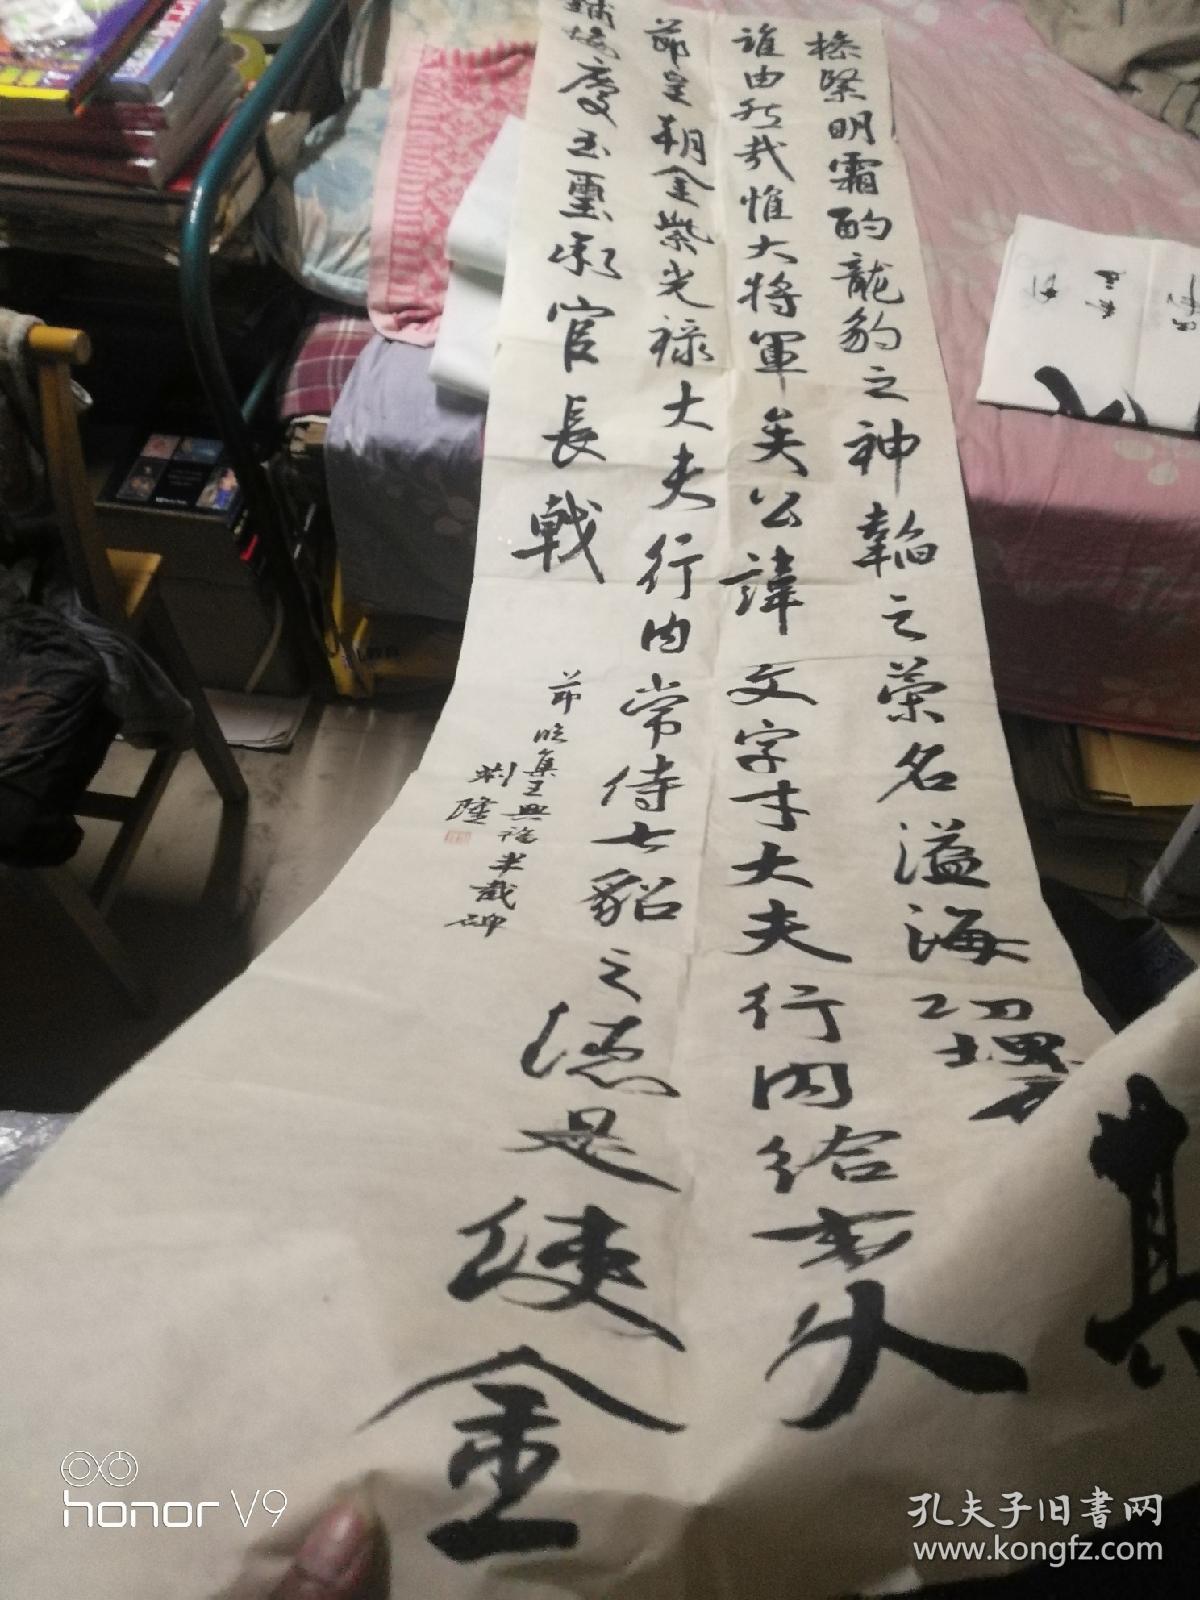 操緊明霜酌龍豹之神韜之榮名溢海
誰由然哉惟大將軍矣公諱文字才大夫行内給事
節皇朝金紫光祿大夫行内常侍七貂之德是使金
慶玉璽彩官長戟
節臨集王興福半截碑
劉隆
honor V9
孔夫子旧書网
www.kongfz.com